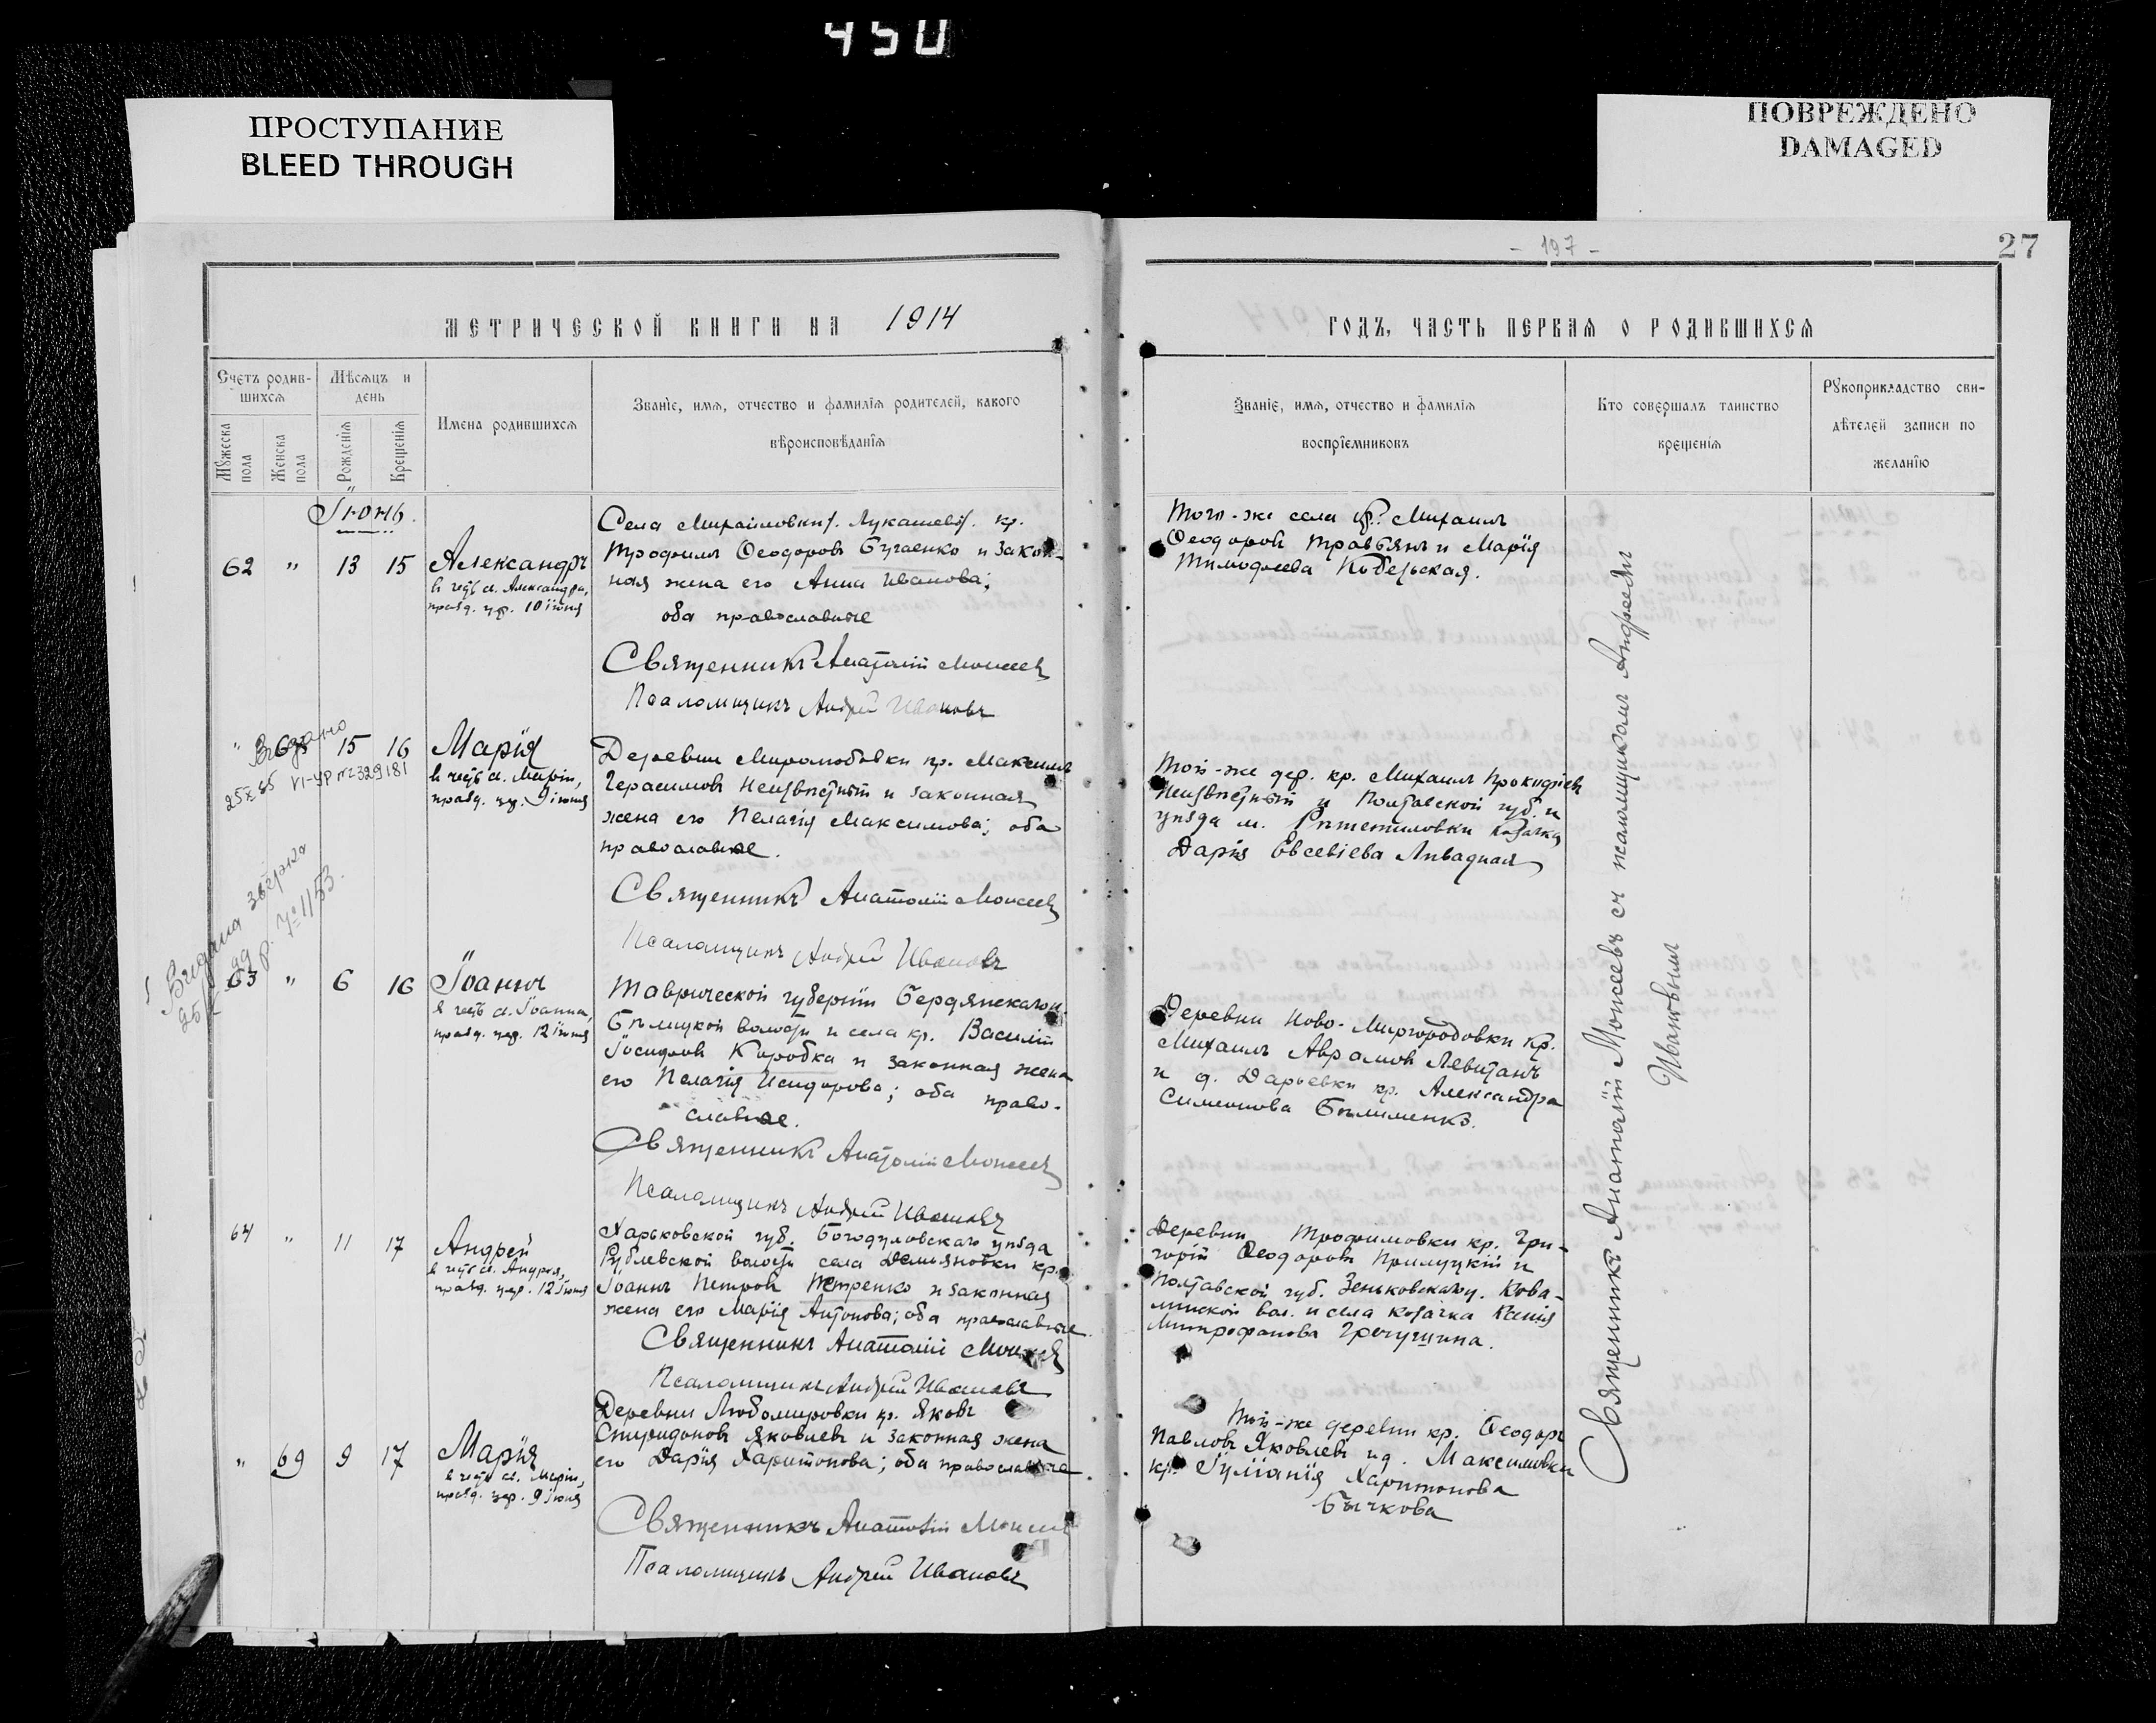 450
ПРОСТУПАНИЕ
BLEED THROUGH
ПОВРЕЖДЕНО
DAMAGED
- 197 -
27
МЕТРИЧЕСКОЙ КНИГИ НА 1914
Счетъ родив-
шихсѧ
Мѣсѧцъ и
день
Имена родившихсѧ
Званїе, имѧ, отчество и фамилїѧ родителей, какого
вѣроисповѣданїѧ
Мужеска
пола
Женска
пола
Рожденїѧ
Крещенїѧ
Іюнь.
62 " 13 15
Александръ
в честь св. Александра,
празд. 10 іюня
Села Михайловки Лукашево кр.
Трофимъ Ѳеодоровъ Бугаенко и закон-
ная жена его Анна Иванова;
оба православные
Священникъ Анатолій Моисеевъ
Псаломщикъ Андрей Ивановъ
" 68 15 16
Видано
25 X 85 VI-УР №329181
Марія
в честь св. Маріи,
празд. 9 іюня
Деревни Миролюбовки кр. Максимъ
Герасимовъ Неизвѣстный и законная
жена его Пелагія Максимова; оба
православные.
Священникъ Анатолій Моисеевъ
Псаломщикъ Андрей Ивановъ
63 " 6 16
Іоаннъ
в честь св. Іоанна,
празд. 12 іюня
Таврической губерніи Бердянскаго у.
Бѣлицкой волости и села кр. Василій
Іосифовъ Коробка и законная жена
его Пелагія Исидорова; оба право-
славные.
Священникъ Анатолій Моисеевъ
Псаломщикъ Андрей Ивановъ
64 " 11 17
Андрей
в честь св. Андрея,
празд. 12 іюня
Харьковской губ. Богодуховскаго уѣзда
Рублевской волости села Демьяновки кр.
Іоаннъ Петровъ Петренко и законная
жена его Марія Антонова; оба православные.
Священникъ Анатолій Моисеевъ
Псаломщикъ Андрей Ивановъ
" 69 9 17
Марія
в честь св. Маріи,
празд. 9 іюня
Деревни Любомировки кр. Яковъ
Спиридоновъ Яковлевъ и законная жена
его Дарія Харитонова; оба православные.
Священникъ Анатолій Моисеевъ
Псаломщикъ Андрей Ивановъ
ГОДЪ, ЧАСТЬ ПЕРВАѦ О РОДИВШИХСѦ
Званїе, имѧ, отчество и фамилїѧ
воспрїемниковъ
Кто совершалъ таинство
крещенїѧ
Рукоприкладство сви-
дѣтелей записи по
желанїю
Того-же села кр. Михаилъ
Ѳеодоровъ Травьянъ и Марія
Тимоѳеева Кобельская.
Той-же дер. кр. Михаилъ Прокофіевъ
Неизвѣстный и Полтавской губ. и
уѣзда м. Рѣшетиловки козачка
Дарія Евсевіева Ливадная
Деревни Ново-Миргородовки кр.
Михаилъ Аврамовъ Левитанъ
и д. Дарьевки кр. Александра
Симеонова Бѣлименко.
Деревни Трофимовки кр. Гри-
горій Ѳеодоровъ Прилуцкій и
Полтавской губ. Зеньковскаго у. Кова-
линской вол. и села козачка Ксенія
Митрофанова Гречущина.
Той-же деревни кр. Ѳеодоръ
Павловъ Яковлевъ и д. Максимовки
кр. Іуліанія Харитонова
Бычкова
Священникъ Анатолій Моисеевъ съ псаломщикомъ Андреемъ
Ивановымъ